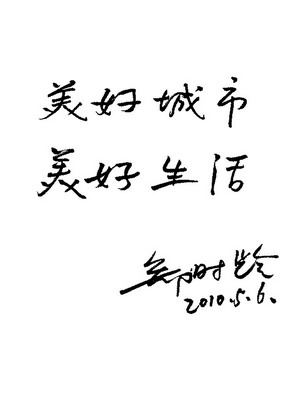 美好城市
美好生活
郑时龄
2010.5.6.